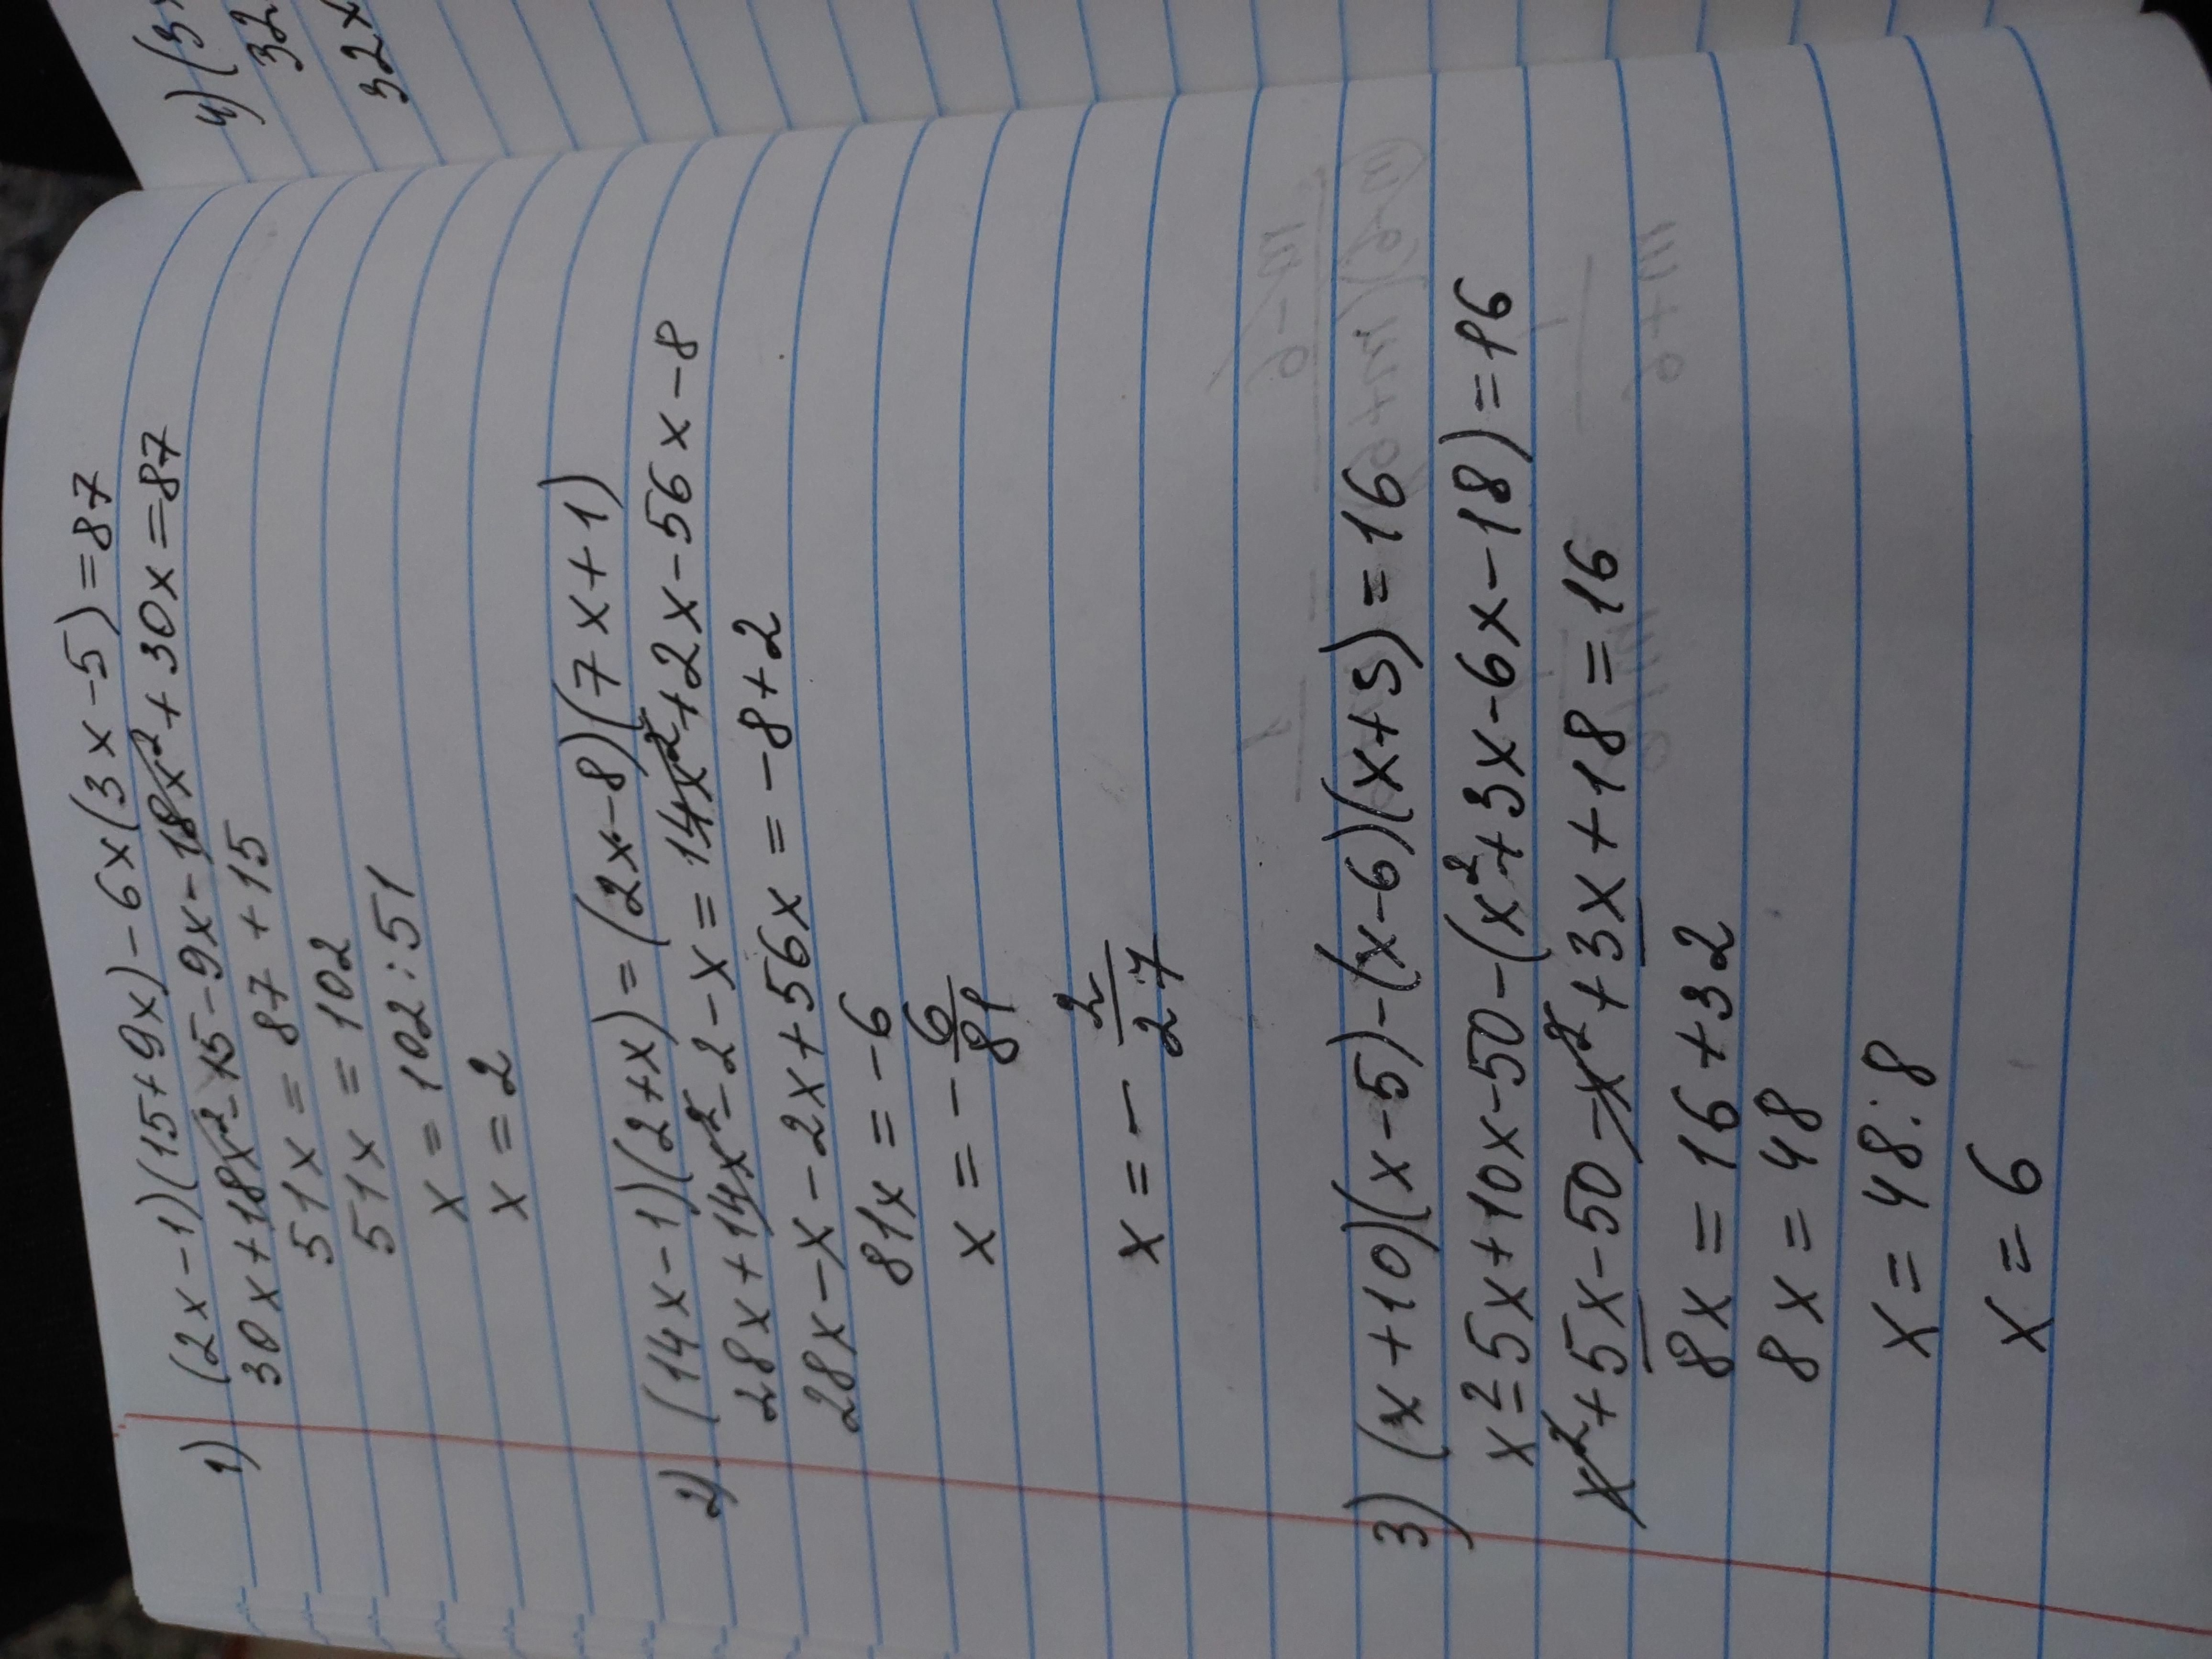 1) (2x-1)(15+9x)-6x(3x-5)=87
30x+18x²-15-9x-18x²+30x=87
51x=87+15
51x=102
x=102:51
x=2
2) (14x-1)(2+x)=(2x-8)(7x+1)
28x+14x²-2-x=14x²+2x-56x-8
28x-x-2x+56x=-8+2
81x=-6
x=-6/81
x=-2/27
3) (x+10)(x-5)-(x-6)(x+3)=16
x²-5x+10x-50-(x²+3x-6x-18)=16
x²+5x-50-x²+3x+18=16
8x=16+32
8x=48
x=48:8
x=6
4) (3
32
32x